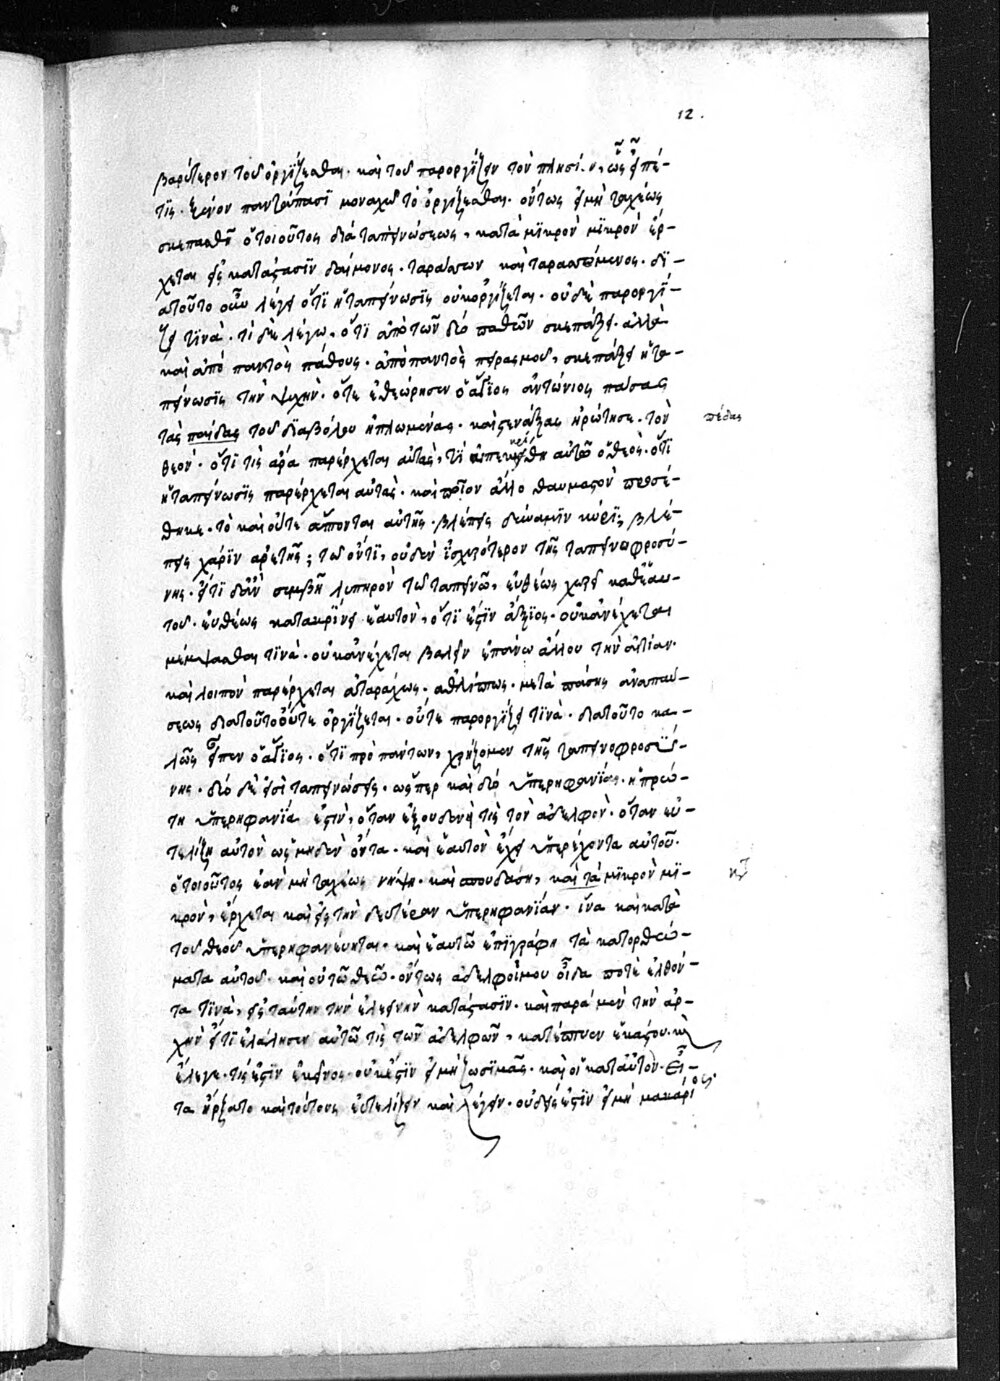 12.
βαρύτερον τοῦ ὀργίζεσθαι. καὶ τοῦ παροργίζειν τὸν πλησί-ν, ὡς εἶπέ-
τϊς. ξένον παντάπασϊ μοναχῶ τὸ ὀργίζεσθαι. οὕτως εἰ μὴ ταχέως
σκεπασθῆ ὁ τοιοῦτος διὰ ταπεινώσεως, κατὰ μϊκρὸν μϊκρὸν ἔρ-
χεται εἰς κατάστασϊν δαίμονος. ταράσσων καὶ ταρασσόμενος. δϊ-
ατοῦτο οὖν λέγει ὅτϊ ἡ ταπείνωσϊς οὐκ ὀργίζεται. οὐδὲ παροργΐ-
ζει τϊνὰ. τί δὲ λέγω, ὅτϊ ἀπὸ τῶν δύο παθῶν σκεπάζει. ἀλλὰ
καὶ ἀπὸ παντὸς πάθους. ἀπὸ παντὸς πειρασμοῦ, σκεπάζει ἡ τα-
πείνωσϊς τὴν ψυχὴν. ὅτε ἐθεώρησεν ὁ ἅγϊος ἀντώνιος πάσας
τὰς παίδας τοῦ διαβόλου ἡπλωμένας. καὶ στενάξας ἠρώτησε. τὸν πέδας
θεὸν. ὅτϊ τίς ἄρα παρέρχεται αὐτὰς, τί ἀπεκρίθη αὐτῶ ὁ θεὸς. ὅτϊ
ἡ ταπείνωσϊς παρέρχεται αὐτὰς. καὶ ποῖον ἄλλο θαυμαστὸν προσέ-
θηκε. τὸ καὶ οὔτε ἅπτονται αὐτῆς. βλέπεις δύναμϊν κύρϊε, βλέ-
πεις χάρϊν ἀρετῆς; τῶ ὄντϊ, οὐδὲν ἰσχυρότερον τῆς ταπεινοφροσύ-
νης. ὅτϊ ἐὰν συμβῆ λυπηρὸν τῶ ταπεινῶ, εὐθέως χωρεῖ καθ' ἑαυ-
τοῦ. εὐθέως κατακρΐνει ἑαυτὸν, ὅτϊ ἐστϊν ἄξϊος. οὐκ ἀνέχεται
μέμψασθαι τϊνὰ. οὐκ ἀνέχεται βαλεῖν ἐπάνω ἄλλου τὴν αἰτίαν.
καὶ λοιπὸν παρέρχεται ἀταράχως. ἀθλίπτως. μετὰ πάσης ἀναπαύ-
σεως διατοῦτο οὔτε ὀργϊζεται. οὔτε παροργΐζει τϊνὰ. διατοῦτο κα-
λῶς εἶπεν ὁ ἅγϊος. ὅτϊ πρὸ πάντων, χρήζομεν τῆς ταπεινοφροσύ-
νης. δύο δὲ εἰσὶ ταπεινώσεις. ὥσπερ καὶ δύο ὑπερηφανίαι. ἡ πρώ-
τη ὑπερηφανΐα ἐστὶν, ὅταν ἐξουδενῆ τις τὸν ἀδελφὸν. ὅταν εὐ-
τελΐζη αὐτὸν ὡς μηδὲν ὄντα. καὶ ἑαυτὸν ἔχει ὑπερέχοντα αὐτοῦ.
ὁ τοιοῦτος ἐὰν μὴ ταχέως νήψη. καὶ σπουδάση, καὶ τὰ μϊκρὸν μϊ-
κρὸν, ἔρχεται καὶ εἰς τὴν δευτέραν ὑπερηφανΐαν. ἵνα καὶ κατὰ
τοῦ θεοῦ ὑπερηφανεύηται. καὶ ἑαυτῶ ἐπϊγράφη τὰ κατορθώ-
ματα αὐτοῦ. καὶ οὐ τῶ θεῶ. ὄντως ἀδελφοί μου οἶδα ποτὲ ἐλθόν-
τα τϊνὰ, εἰς ταύτην τὴν ἐλεεινὴν κατάστασϊν. καὶ παρὰ μὲν τὴν ἀρ-
χὴν εἴ τϊ ἐλάλησεν αὐτῶ τις τῶν ἀδελφῶν, κατέπτυεν ἑκάστου. κὶ
ἔλεγε. τίς ἐστϊν ἐκεῖνος. οὐκ ἔστϊν εἰ μὴ ζωσϊμᾶς. καὶ οἱ κατ' αὐτὸν. Εἶ-
τα ἤρξατο καὶ τούτους εὐτελΐζειν καὶ λέγειν. οὐδείς ἐστϊν εἰ μὴ μακάριος